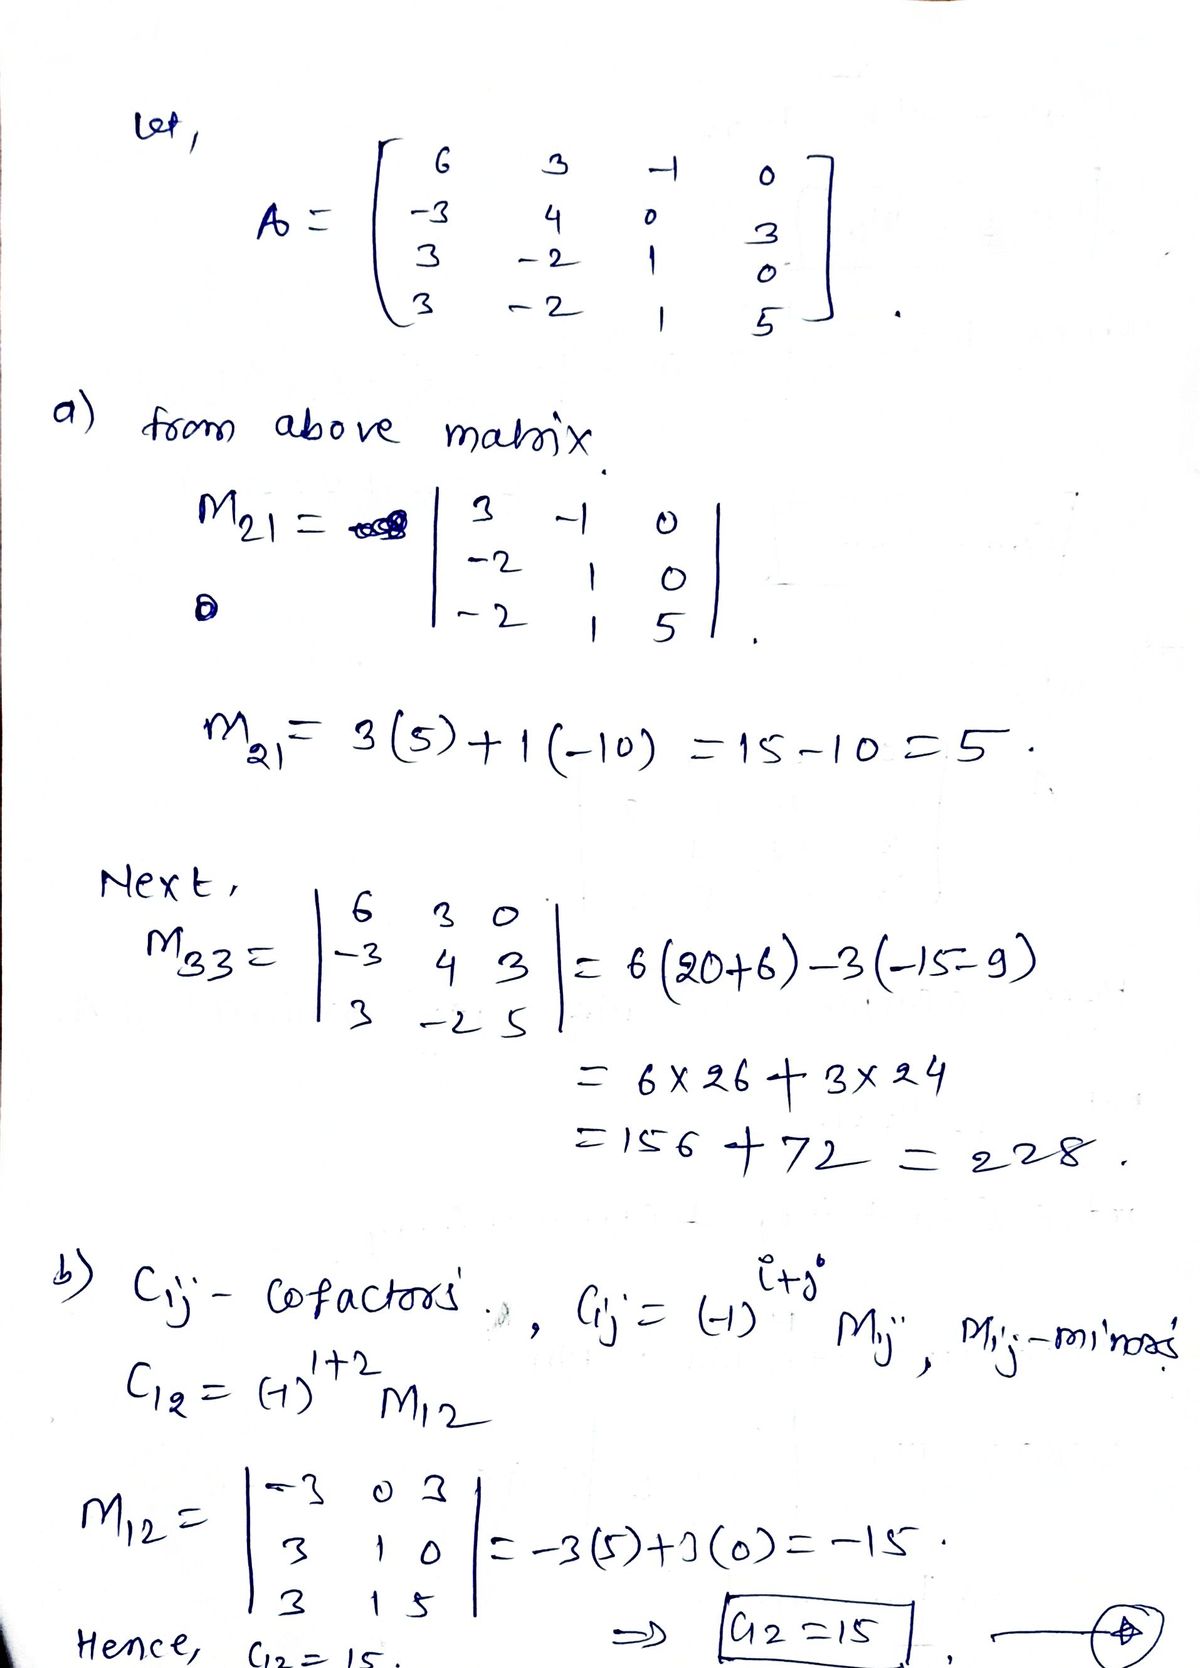 Let,
A = [ 6 3 -1 0
-3 4 0 3
3 -2 1 0
3 -2 1 5 ] .
a) from above matrix.
M21 = | 3 -1 0
-2 1 0
-2 1 5 | .
M21 = 3(5)+1(-10) = 15-10 = 5 .
Next,
M33 = | 6 3 0
-3 4 3
3 -2 5 | = 6(20+6)-3(-15-9)
= 6×26+3×24
= 156+72 = 228 .
b) Cij - Cofactors . , Cij = (-1)^i+j Mij , Mij - minors
C12 = (-1)^1+2 M12
M12 = | -3 0 3
3 1 0
3 1 5 | = -3(5)+3(0) = -15 .
Hence, C12 = 15. ⇒ C12 = 15 .